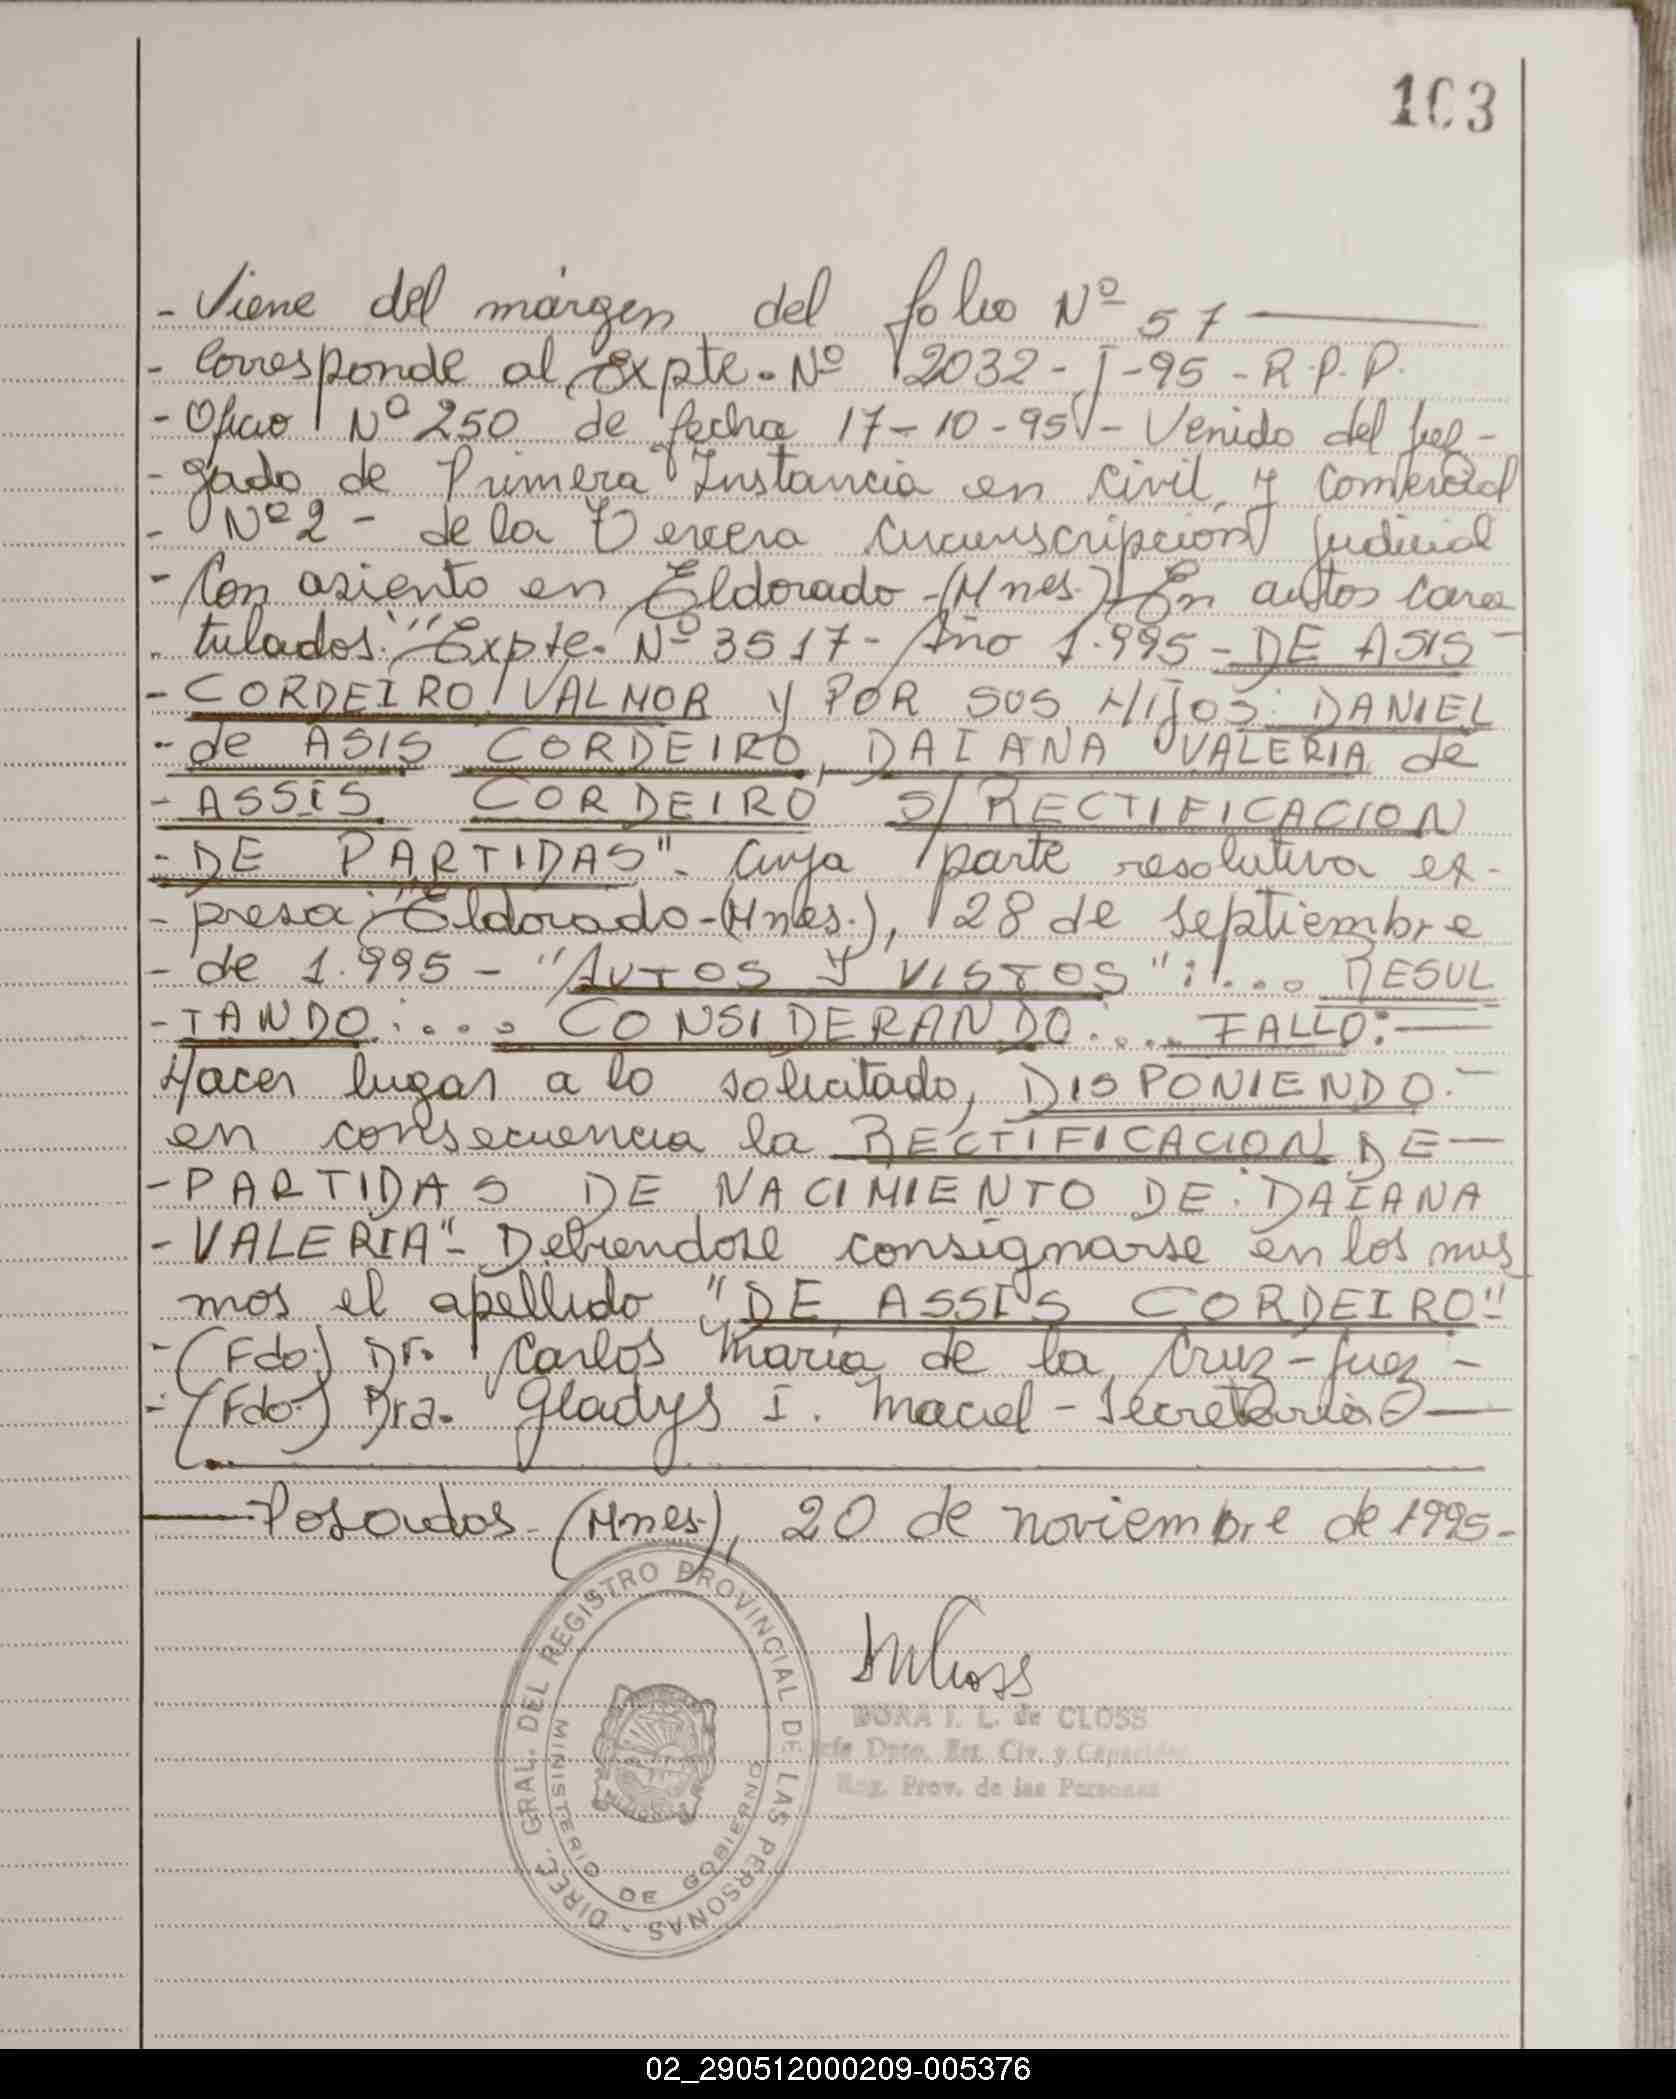 103
- Viene del márgen del folio Nº 57 —
- Corresponde al Expte. Nº 2032 - J - 95 - R.P.P.
- Oficio Nº 250 de fecha 17-10-95 - Venido del Juz-
- gado de Primera Instancia en Civil y Comercial
- Nº 2 - de la Tercera Circunscripción Judicial
- Con asiento en Eldorado - (Mnes.) En autos cara
. tulados: "Expte. Nº 3517 - Año 1.995 - DE ASIS -
- CORDEIRO VALMOR y POR SUS HIJOS: DANIEL
- de ASIS CORDEIRO, DAIANA VALERIA de
- ASSIS CORDEIRO S/ RECTIFICACION
- DE PARTIDAS". Cuya parte resolutiva ex-
- presa: "Eldorado - (Mnes.), 28 de Septiembre
- de 1.995 - "AUTOS Y VISTOS": .... RESUL
- TANDO: .... CONSIDERANDO: .... FALLO: —
Hacer lugar a lo solicitado, DISPONIENDO. -
en consecuencia la RECTIFICACION DE —
- PARTIDAS DE NACIMIENTO DE: DAIANA
- VALERIA" - Debiendose consignarse en los mis
mos el apellido "DE ASSIS CORDEIRO"
- (Fdo.) Dr. Carlos María de la Cruz - Juez -
- (Fdo.) Dra. Gladys I. Maciel - Secretaria —
— Posadas - (Mnes.), 20 de noviembre de 1995. -
DIREC. GRAL. DEL REGISTRO PROVINCIAL DE LAS PERSONAS
MINISTERIO DE GOBIERNO
DORA I. L. de CLOSS
Jefe Dpto. Est. Civ. y Capacidad
Reg. Prov. de las Personas
02_290512000209-005376